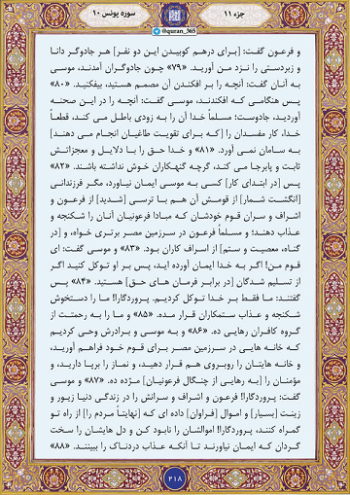 جزء ۱۱
سوره یونس ۱۰
@quran_365
و فرعون گفت: [برای درهم کوبیدن این دو نفر] هر جادوگر دانا
و زبردستی را نزد من آورید. «۷۹» چون جادوگران آمدند، موسی
به آنان گفت: آنچه را بر افکندن آن مصمم هستید، بیفکنید. «۸۰»
پس هنگامی که افکندند، موسی گفت: آنچه را در این صحنه
آوردید، جادوست؛ مسلماً خدا آن را به زودی باطل می کند، قطعاً
خدا، کار مفسدان را [که برای تقویت طاغیان انجام می دهند]
به سامان نمی آورد. «۸۱» و خدا حق را با دلایل و معجزاتش
ثابت و پابرجا می کند، گرچه گنهکاران خوش نداشته باشند. «۸۲»
پس [در ابتدای کار] کسی به موسی ایمان نیاورد، مگر فرزندانی
[انگشت شمار] از قومش آن هم با ترسی [شدید] از فرعون و
اشراف و سران قوم خودشان که مبادا فرعونیان آنان را شکنجه و
عذاب دهند؛ و مسلماً فرعون در سرزمین مصر برتری خواه، و [در
گناه، معصیت و ستم] از اسراف کاران بود. «۸۳» و موسی گفت: ای
قوم من! اگر به خدا ایمان آورده اید، پس بر او توکل کنید اگر
از تسلیم شدگان [در برابر فرمان های حق] هستید. «۸۴» پس
گفتند: ما فقط بر خدا توکل کردیم. پروردگارا! ما را دستخوش
شکنجه و عذاب ستمکاران قرار مده. «۸۵» و ما را به رحمتت از
گروه کافران رهایی ده. «۸۶» و به موسی و برادرش وحی کردیم
که خانه هایی در سرزمین مصر برای قوم خود فراهم آورید،
و خانه هایتان را روبروی هم قرار دهید، و نماز را برپا دارید، و
مؤمنان را [به رهایی از چنگال فرعونیان] مژده ده. «۸۷» و موسی
گفت: پروردگارا! فرعون و اشراف و سرانش را در زندگی دنیا زیور و
زینت [بسیار] و اموال [فراوان] داده ای که [نهایتاً مردم را] از راه تو
گمراه کنند، پروردگارا! اموالشان را نابود کن و دل هایشان را سخت
گردان که ایمان نیاورند تا آنکه عذاب دردناک را ببینند. «۸۸»
۲۱۸